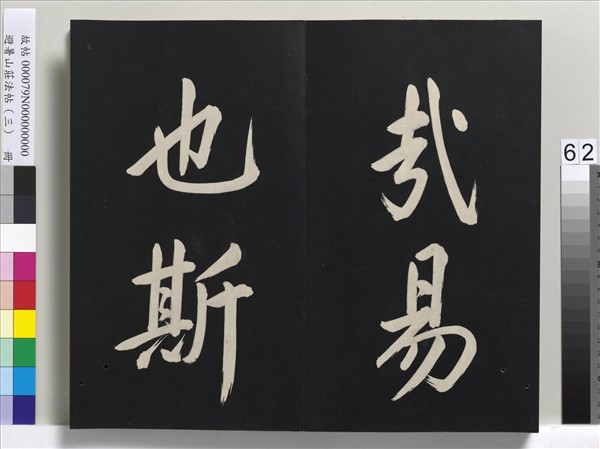 哉易
也斯
故帖 000079N000000000
避暑山莊法帖（三） 冊
62